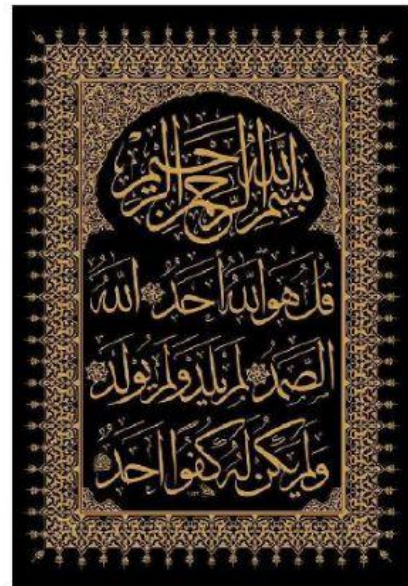 بسم الله الرحمن الرحيم
قل هو الله أحد الله
الصمد لم يلد ولم يولد
ولم يكن له كفوا احد